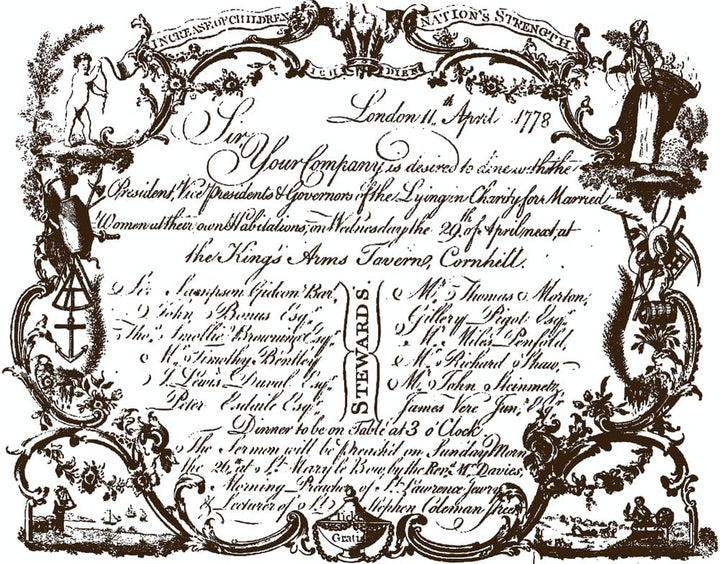 INCREASE OF CHILDREN
NATION'S STRENGTH
ICH DIEN
London 11.th April 1778
Sir
Your Company is desired to dine with the
President, Vice Presidents & Governors of the Lying in Charity for Married
Women at their own Habitations, on Wednesday the 29.th of April next, at
the King's Arms Tavern, Cornhill.
STEWARDS
Sir Sampson Gideon Bar.t
John Bonus Esq.r
Tho.s Smollie Browning Esq.r
M.r Timothy Bentley
Lewis Duval Esq.r
Peter Esdaile Esq.r
M.r Thomas Morton,
Gillery Pigot Esq.r
M.r Miles Penfold,
M.r Richard Shaw,
M.r John Steinmetz
James Vere Jun.r Esq.r
Dinner to be on Table at 3 o'Clock
The Sermon will be preach'd on Sunday Morn
the 26.th at S.t Mary le Bow, by the Rev.d M.r Davies,
Morning Preacher of S.t Lawrence Jewry
& Lecturer of S.t Stephen Coleman Street
Ticket
Gratis